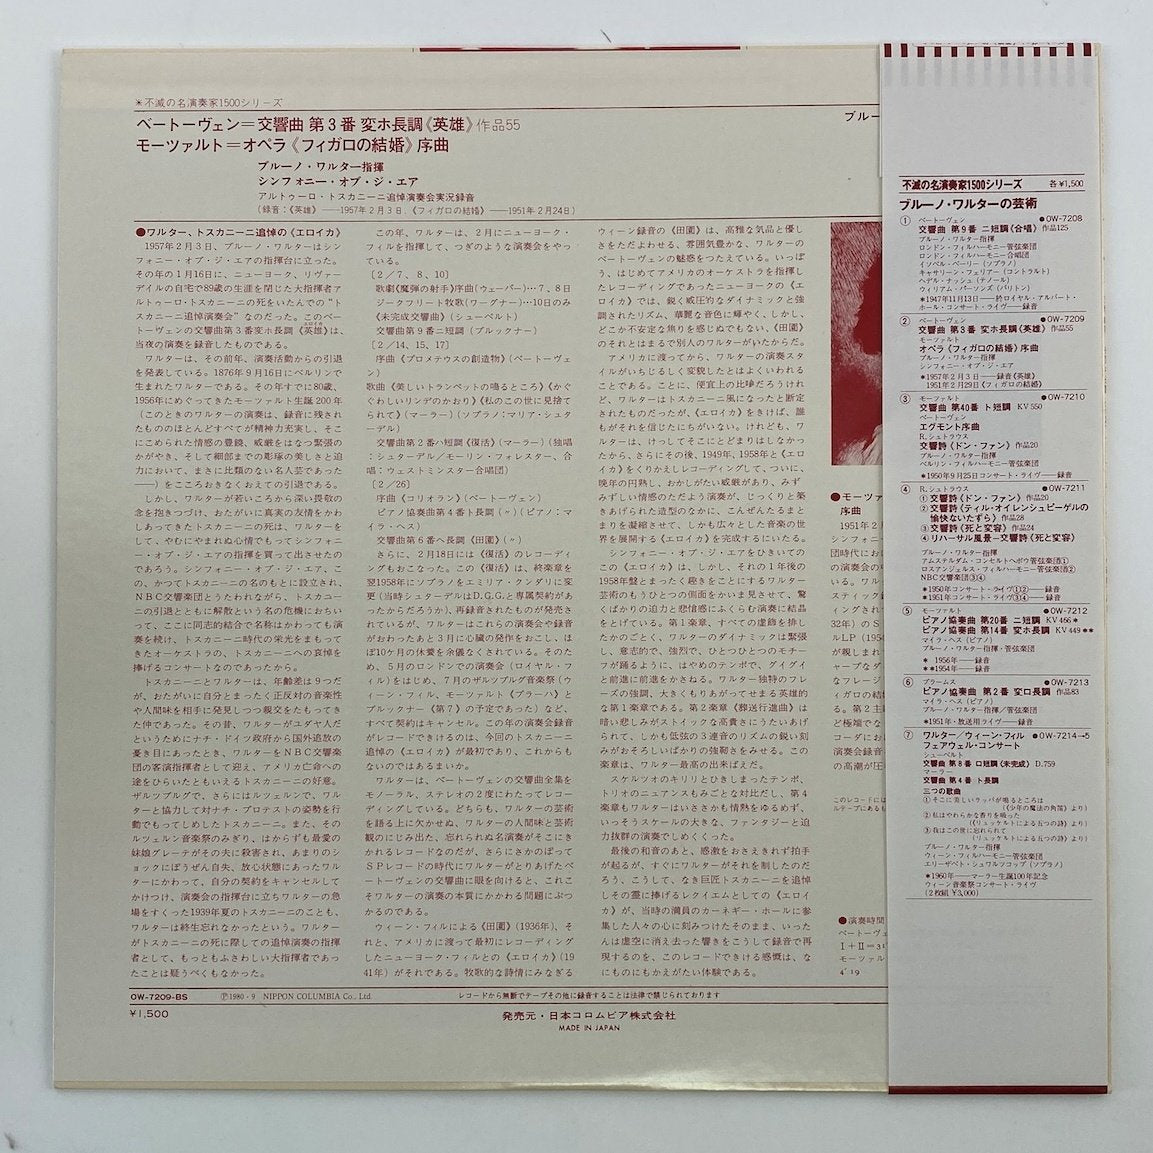 ＊不滅の名演奏家1500シリーズ
ベートーヴェン＝交響曲 第3番 変ホ長調《英雄》作品55
モーツァルト＝オペラ《フィガロの結婚》序曲
ブルーノ・ワルター指揮
シンフォニー・オブ・ジ・エア
アルトゥーロ・トスカニーニ追悼演奏会実況録音
（録音：《英雄》――1957年2月3日、《フィガロの結婚》――1951年2月24日）
●ワルター、トスカニーニ追悼の《エロイカ》
1957年2月3日、ブルーノ・ワルターはシン
フォニー・オブ・ジ・エアの指揮台に立った。
その年の1月16日に、ニューヨーク、リヴァー
デイルの自宅で89歳の生涯を閉じた大指揮者ア
ルトゥーロ・トスカニーニの死をいたんでの“ト
スカニーニ追悼演奏会”なのだった。このベー
トーヴェンの交響曲第3番変ホ長調《英雄》は、
当夜の演奏を録音したものである。
ワルターは、その前年、演奏活動からの引退
を発表している。1876年9月16日にベルリンで
生まれたワルターである。その年すでに80歳、
1956年にめぐってきたモーツァルト生誕200年
（このときのワルターの演奏は、録音に残され
たもののほとんどすべてが精神力充実し、そこ
にこめられた情感の豊饒、威厳をはなつ緊張の
かがやき、そして細部までの彫琢の美しさと迫
力において、まさに比類のない名人芸であった
――）をこころおきなくおえての引退である。
しかし、ワルターが若いころから深い畏敬の
念を抱きつづけ、おたがいに真実の友情をかわ
しあってきたトスカニーニの死は、ワルターを
して、やむにやまれぬ心情でもってシンフォニ
ー・オブ・ジ・エアの指揮を買って出させたの
であろう。シンフォニー・オブ・ジ・エア、そ
の、かつてトスカニーニの名のもとに設立され、
NBC交響楽団とうたわれながら、トスカニー
ニの引退とともに解散という名の危機におちい
って、ここに同志的結合で名称はかわっても演
奏を続け、トスカニーニ時代の栄光をまもって
きたオーケストラの、トスカニーニへの哀悼を
捧げるコンサートなのであったから。
トスカニーニとワルターは、年齢差は9つだ
が、おたがいに自分とまったく正反対の音楽性
や人間味を相手に発見しつつ親交をたもってき
た仲であった。その昔、ワルターがユダヤ人だ
というためにナチ・ドイツ政府から国外追放の
憂き目にあったとき、ワルターをNBC交響楽
団の客演指揮者として迎え、アメリカ亡命への
途をひらいたともいえるトスカニーニの好意。
ザルツブルグで、さらにはルツェルンで、ワル
ターと協力して対ナチ・プロテストの姿勢を行
動でもってしめしたトスカニーニ。また、その
ルツェルン音楽祭のみぎり、はからずも最愛の
妹娘グレーテがその夫に殺害され、あまりのシ
ョックにぼうぜん自失、放心状態にあったワル
ターにかわって、自分の契約をキャンセルして
かけつけ、演奏会の指揮台に立ちワルターの急
場をすくった1939年夏のトスカニーニのことも、
ワルターは終生忘れなかったという。ワルター
がトスカニーニの死に際しての追悼演奏の指揮
者として、もっともふさわしい大指揮者であっ
たことは疑うべくもなかった。
この年、ワルターは、2月にニューヨーク・
フィルを指揮して、つぎのような演奏会をやっ
ている。
〔2／7、8、10〕
歌劇《魔弾の射手》序曲（ウェーバー）…7、8日
ジークフリート牧歌（ワーグナー）…10日のみ
《未完成交響曲》（シューベルト）
交響曲第9番ニ短調（ブルックナー）
〔2／14、15、17〕
序曲《プロメテウスの創造物》（ベートーヴェ
ン）
歌曲《美しいトランペットの鳴るところ》《かぐ
わしいリンデのかおり》《私のこの世に見捨て
られて》（マーラー）（ソプラノ：マリア・シュタ
ーデル）
交響曲第2番ハ短調《復活》（マーラー）（独唱
：シュターデル／モーリン・フォレスター、合
唱：ウェストミンスター合唱団）
〔2／26〕
序曲《コリオラン》（ベートーヴェン）
ピアノ協奏曲第4番ト長調（〃）（ピアノ：マ
イラ・ヘス）
交響曲第6番ヘ長調《田園》（〃）
さらに、2月18日には《復活》のレコーディ
ングもおこなった。この《復活》は、終楽章を
翌1958年にソプラノをエミリア・クンダリに変
更（当時シュターデルはD.G.G.と専属契約があ
ったからだろうか）、再録音されたものが発売さ
れているが、ワルターはこれらの演奏会や録音
がおわったあと3月に心臓の発作をおこし、ほ
ぼ10ケ月の休養を余儀なくされている。そのた
め、5月のロンドンでの演奏会（ロイヤル・フ
ィル）をはじめ、7月のザルツブルグ音楽祭（ウ
ィーン・フィル、モーツァルト《プラーハ》と
ブルックナー《第7》の予定であった）など、
すべて契約はキャンセル。この年の演奏会録音
がレコードできけるのは、今回のトスカニーニ
追悼の《エロイカ》が最初であり、これからも
ないのではあるまいか。
ワルターは、ベートーヴェンの交響曲全集を
モノーラル、ステレオの2度にわたってレコー
ディングしている。どちらも、ワルターの芸術
を語る上に欠かせぬ、ワルターの人間味と芸術
観のにじみ出た、忘れられぬ名演奏がそこにき
かれるレコードなのだが、さらにさかのぼって
SPレコードの時代にワルターがとりあげたベ
ートーヴェンの交響曲に眼を向けると、これこ
そワルターの演奏の本質にかかわる問題にぶつ
かるのである。
ウィーン・フィルによる《田園》（1936年）、そ
れと、アメリカに渡って最初にレコーディング
したニューヨーク・フィルとの《エロイカ》（19
41年）がそれである。牧歌的な詩情にみなぎる
ウィーン録音の《田園》は、高雅な気品と優し
さをただよわせる、雰囲気豊かな、ワルターの
ベートーヴェンの魅惑をつたえている。いっぽ
う、はじめてアメリカのオーケストラを指揮し
たレコーディングであったニューヨークの《エ
ロイカ》では、鋭く威圧的なダイナミックと強
調されたリズム、華麗な音色に輝やく、しかし、
どこか不安定な焦りを感じぬでもない、《田園》
のそれとはまるで別人のワルターがいたからだ。
アメリカに渡ってから、ワルターの演奏スタ
イルがいちじるしく変貌したとはよくいわれる
ことである。ことに、便宜上の比喩だろうけれ
ど、ワルターはトスカニーニ風になったと断定
されたものだったが、《エロイカ》をきけば、誰
もがそれを信じたにちがいない。けれども、ワ
ルターは、けっしてそこにとどまりはしなかっ
たから、さらにその後、1949年、1958年と《エロ
イカ》をくりかえしレコーディングして、ついに、
晩年の円熟し、おかしがたい威厳があり、みず
みずしい情感のただよう演奏が、じっくりと築
きあげられた造型のなかに、こんぜんたるまと
まりを凝縮させて、しかも広々とした音楽の世
界を展開する《エロイカ》を完成するにいたる。
シンフォニー・オブ・ジ・エアをひきいての
この《エロイカ》は、しかし、それの1年後の
1958年盤とまったく趣きをことにするワルター
芸術のもうひとつの側面をかいま見させて、驚
くばかりの迫力と悲愴感にふくらむ演奏に結晶
をとげている。第1楽章、すべての虚飾を排し
たかのごとく、ワルターのダイナミックは緊張
し、意志的で、強烈で、ひとつひとつのモチー
フが踊るように、はやめのテンポで、グイグイ
と前進に前進をかさねる。ワルター独特のフレ
ーズの強調、大きくもりあがってせまる英雄的
な第1楽章である。第2楽章《葬送行進曲》は
暗い悲しみがストイックな高貴さにうたいあげ
られて、しかも低弦の3連音のリズムの鋭い刻
みがおそろしいばかりの強靭さをみせる。この
楽章は、ワルター最高の出来ばえだ。
スケルツォのキリリとひきしまったテンポ、
トリオのニュアンスもみごとな対比だし、第4
楽章もワルターはいささかも情熱をゆるめず、
いっそうスケールの大きな、ファンタジーと迫
力抜群の演奏でしめくくった。
最後の和音のあと、感激をおさえきれず拍手
が起るが、すぐにワルターがそれを制したのだ
ろう、こうして、なき巨匠トスカニーニを追悼
しその霊に捧げるレクイエムとしての《エロイ
カ》が、当時の満員のカーネギー・ホールに参
集した人々の心に刻みつけたそのまま、いった
んは虚空に消え去った響きをこうして録音で再
現するのを、このレコードできける感慨は、な
にものにもかえがたい体験である。
ブルー
●モーツァ
序曲
●演奏時間
ベートーヴェ
I＋II＝3
モーツァル
4′19
OW-7209-BS
Ⓟ1980・9 NIPPON COLUMBIA Co., Ltd
レコードから無断でテープその他に録音することは法律で禁じられております
￥1,500
発売元・日本コロムビア株式会社
MADE IN JAPAN
不滅の名演奏家1500シリーズ 各￥1,500
ブルーノ・ワルターの芸術
① ベートーヴェン ●OW-7208
交響曲 第9番 ニ短調《合唱》作品125
ブルーノ・ワルター指揮
ロンドン・フィルハーモニー管弦楽団
ロンドン・フィルハーモニー合唱団
イソベル・ベーリー（ソプラノ）
キャサリーン・フェリアー（コントラルト）
ヘデル・ナッシュ（テノール）
ウィリアム・パーソンズ（バリトン）
＊1947年11月13日――於ロイヤル・アルバート・
ホール・コンサート・ライヴ――録音
② ベートーヴェン ●OW-7209
交響曲 第3番 変ホ長調《英雄》作品55
モーツァルト
オペラ《フィガロの結婚》序曲
ブルーノ・ワルター指揮
シンフォニー・オブ・ジ・エア
＊1957年2月3日――録音《英雄》
1951年2月29日《フィガロの結婚》
③ モーツァルト ●OW-7210
交響曲 第40番 ト短調 KV550
ベートーヴェン
エグモント序曲
R.シュトラウス
交響詩《ドン・ファン》作品20
ブルーノ・ワルター指揮
ベルリン・フィルハーモニー管弦楽団
＊1950年9月25日コンサート・ライヴ――録音
④ R.シュトラウス ●OW-7211
①交響詩《ドン・ファン》作品20
②交響詩《ティル・オイレンシュピーゲルの
愉快ないたずら》作品28
③交響詩《死と変容》作品24
④リハーサル風景―交響詩《死と変容》
ブルーノ・ワルター指揮
アムステルダム・コンセルトヘボウ管弦楽団①
ロスアンジェルス・フィルハーモニー管弦楽団②
NBC交響楽団③④
＊1950年コンサート・ライヴ①②――録音
＊1951年コンサート・ライヴ③④――録音
⑤ モーツァルト ●OW-7212
ピアノ協奏曲 第20番 ニ短調 KV466＊
ピアノ協奏曲 第14番 変ホ長調 KV449＊＊
マイラ・ヘス（ピアノ）
ブルーノ・ワルター指揮・管弦楽団
＊ 1956年――録音
＊＊1954年――録音
⑥ ブラームス ●OW-7213
ピアノ協奏曲 第2番 変ロ長調 作品83
マイラ・ヘス（ピアノ）
ブルーノ・ワルター指揮／管弦楽団
＊1951年・放送用ライヴ――録音
⑦ ワルター／ウィーン・フィル ●OW-7214→5
フェアウェル・コンサート
シューベルト
交響曲 第8番 ロ短調《未完成》D.759
マーラー
交響曲 第4番 ト長調
三つの歌曲
①そこに美しいラッパが鳴るところは
（《少年の魔法の角笛》より）
②私はやわらかな香りを吸った
（《リュッケルトによる五つの詩》より）
③我はこの世に忘れられて
（《リュッケルトによる五つの詩》より）
ブルーノ・ワルター指揮
ウィーン・フィルハーモニー管弦楽団
エリーザベト・シュワルツコップ（ソプラノ）
＊1960年――マーラー生誕100年記念
ウィーン音楽祭コンサート・ライヴ
（2枚組￥3,000）